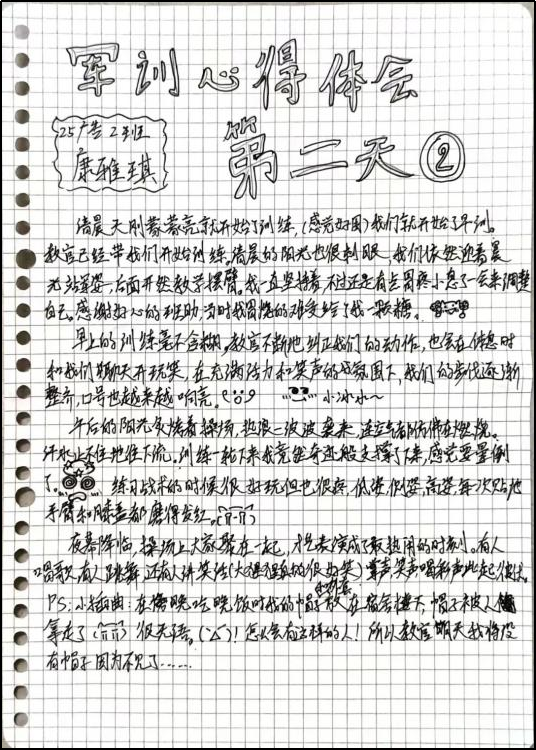 军训心得体会
25广告2班
康雅琪
第二天②
清晨天刚蒙蒙亮就开始了训练,(感觉好困)我们就开始了早训。
教官已经带我们开始训练。清晨的阳光也很刺眼,我们依然迎着晨
光站军姿,后面开然教学摆臂。我一直坚持着不过还是有点胃疼小息了一会来调整
自己。感谢好心的班助,当时我胃疼的难受给了我一颗糖。
早上的训练毫不含糊。教官不断地纠正我们的动作,也会在休息时
和我们聊天开玩笑,在充满活力和笑声的氛围下,我们的步伐逐渐
整齐,口号也越来越响亮。 小冰冰~
午后的阳光炙烤着操场,热浪一波波袭来,连空气都仿佛在燃烧。
汗水止不住地往下流,训练一轮下来我竟然奇迹般支撑了下来,感觉要晕倒
了。 练习战术的时候很好玩但也很疼,低姿,侧姿,高姿,每次贴地
手臂和膝盖都磨得发红。
夜幕降临,操场上大家聚在一起,才艺表演成了最热闹的时刻。有人
唱歌,有人跳舞,还有人讲笑话(大猩猩真的很好笑)掌声笑声喝彩声此起彼伏
PS:小插曲:在傍晚吃晚饭时我的帽子放在宿舍楼下,帽子被人
拿走了 很无语。 !怎么会有这样的人!所以教官明天我将没
有帽子因为不见了……